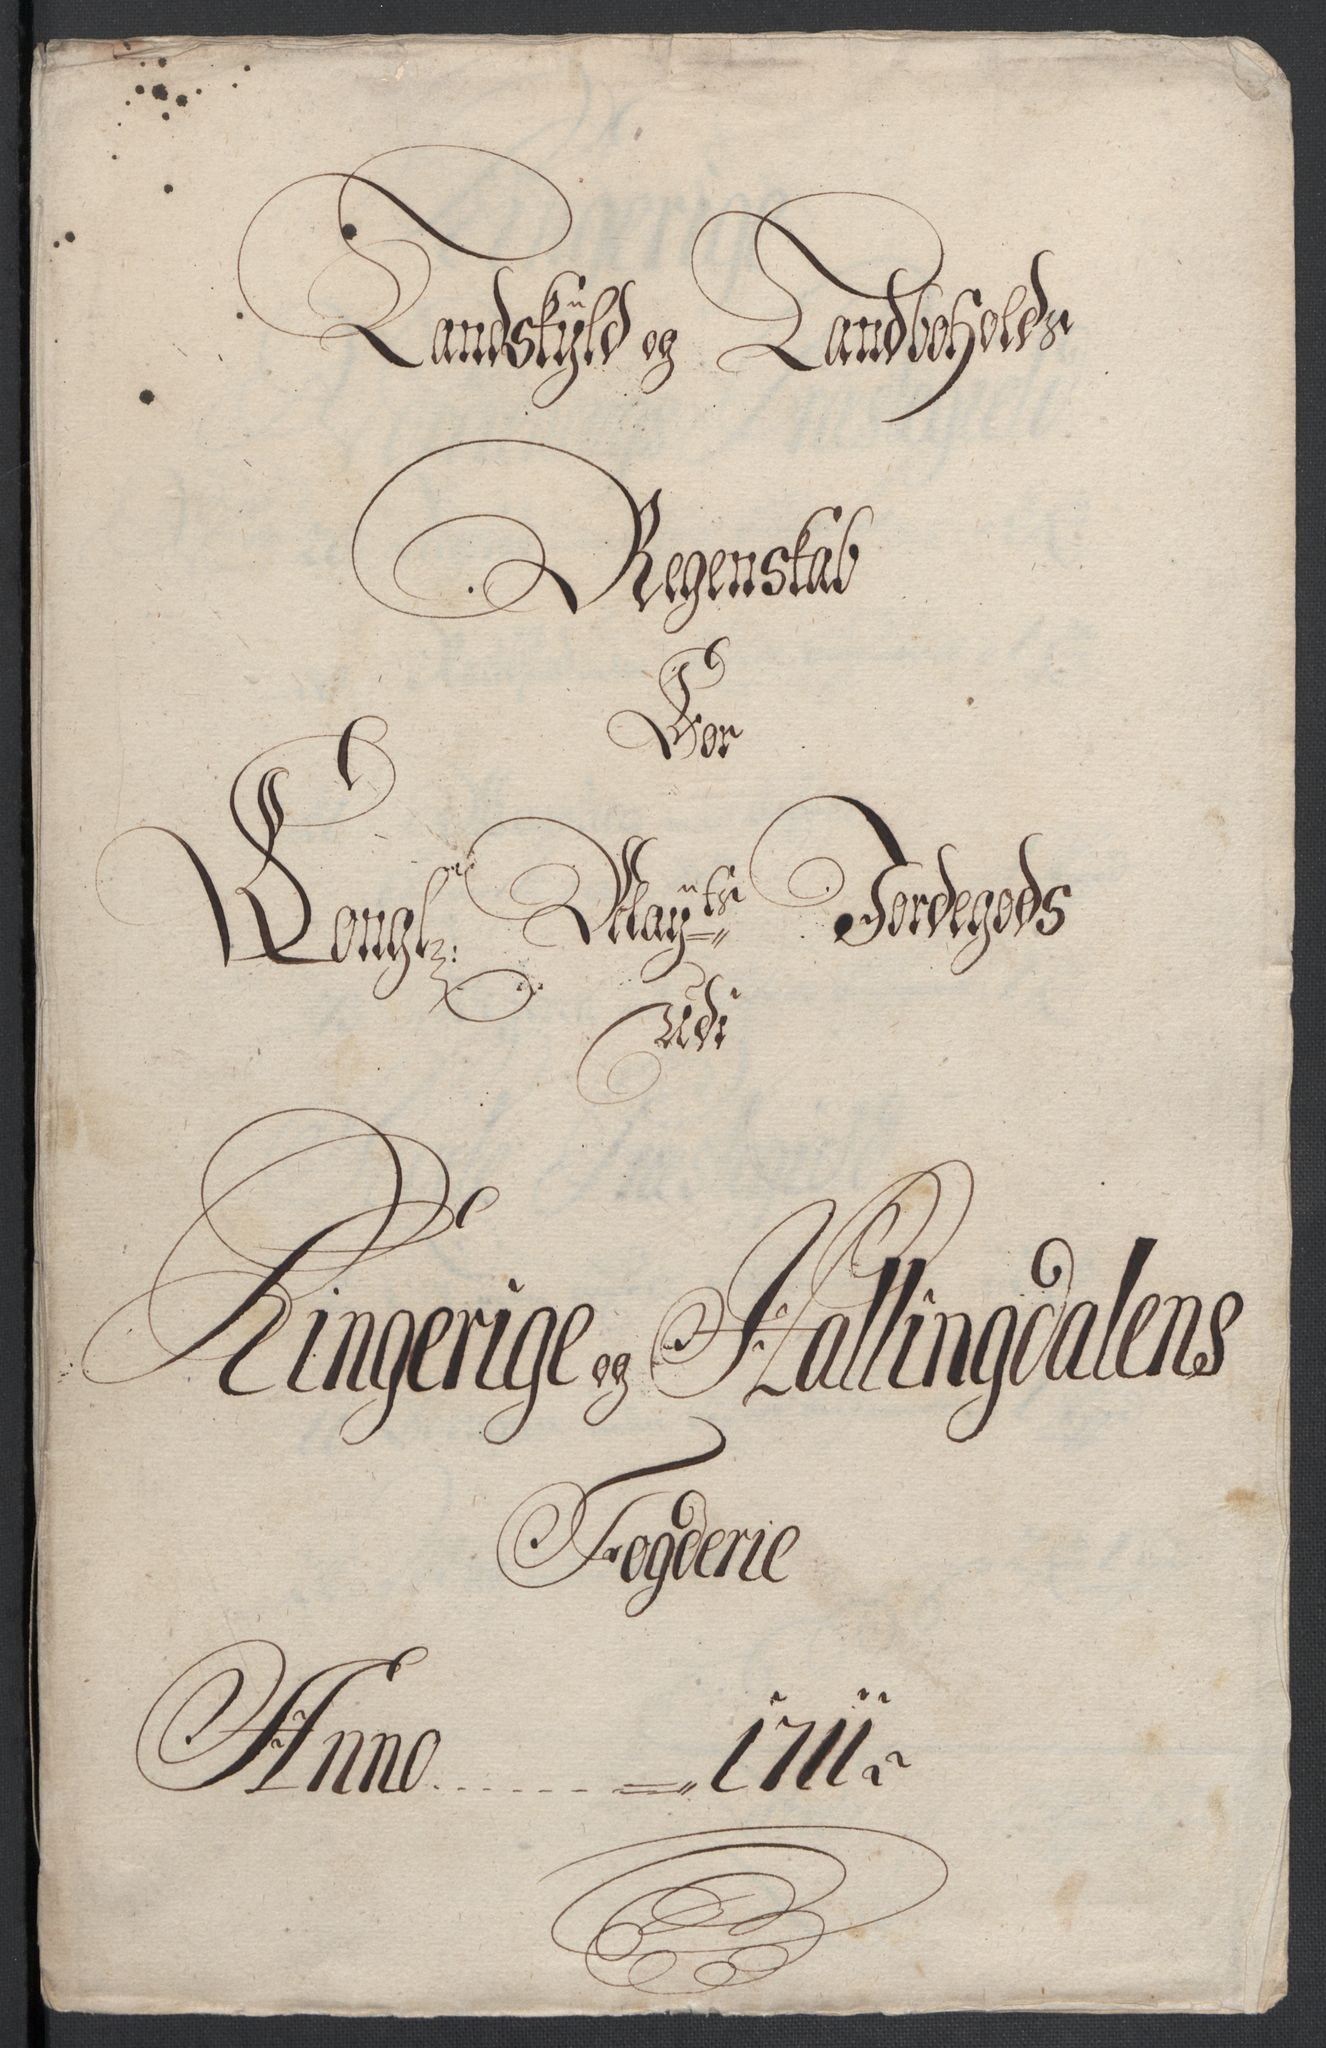 Landskÿld og Landboholds
Regenskab
For
Kongl: Maÿts Jordegods
Udi
Ringerige og Hallingdalens
Fogderie
Anno ...... 1711